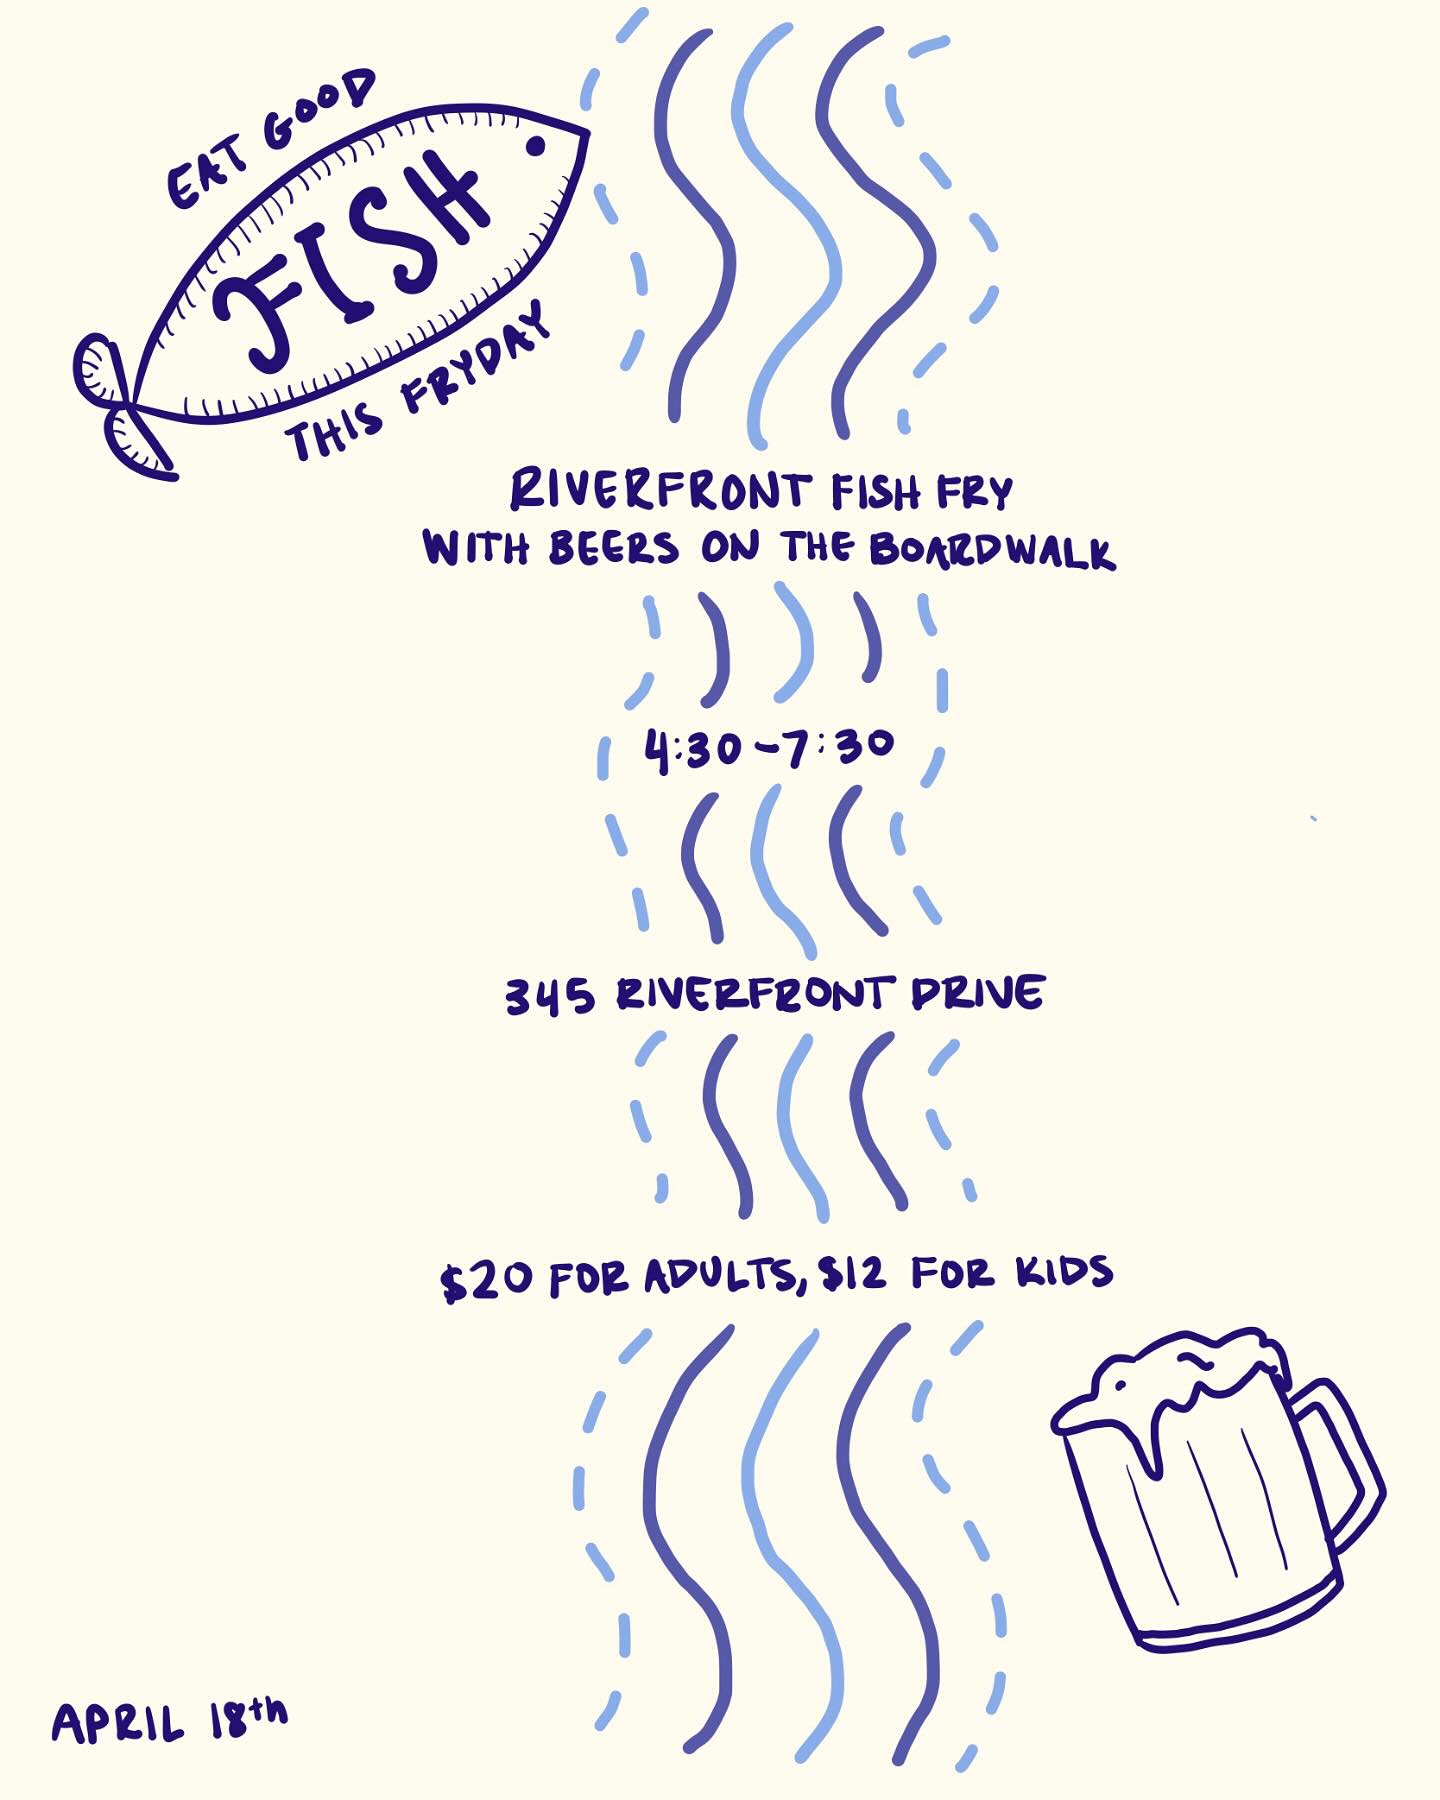 EAT GOOD
FISH
THIS FRYDAY
RIVERFRONT FISH FRY
WITH BEERS ON THE BOARDWALK
4:30-7:30
345 RIVERFRONT DRIVE
$20 FOR ADULTS, $12 FOR KIDS
APRIL 18th